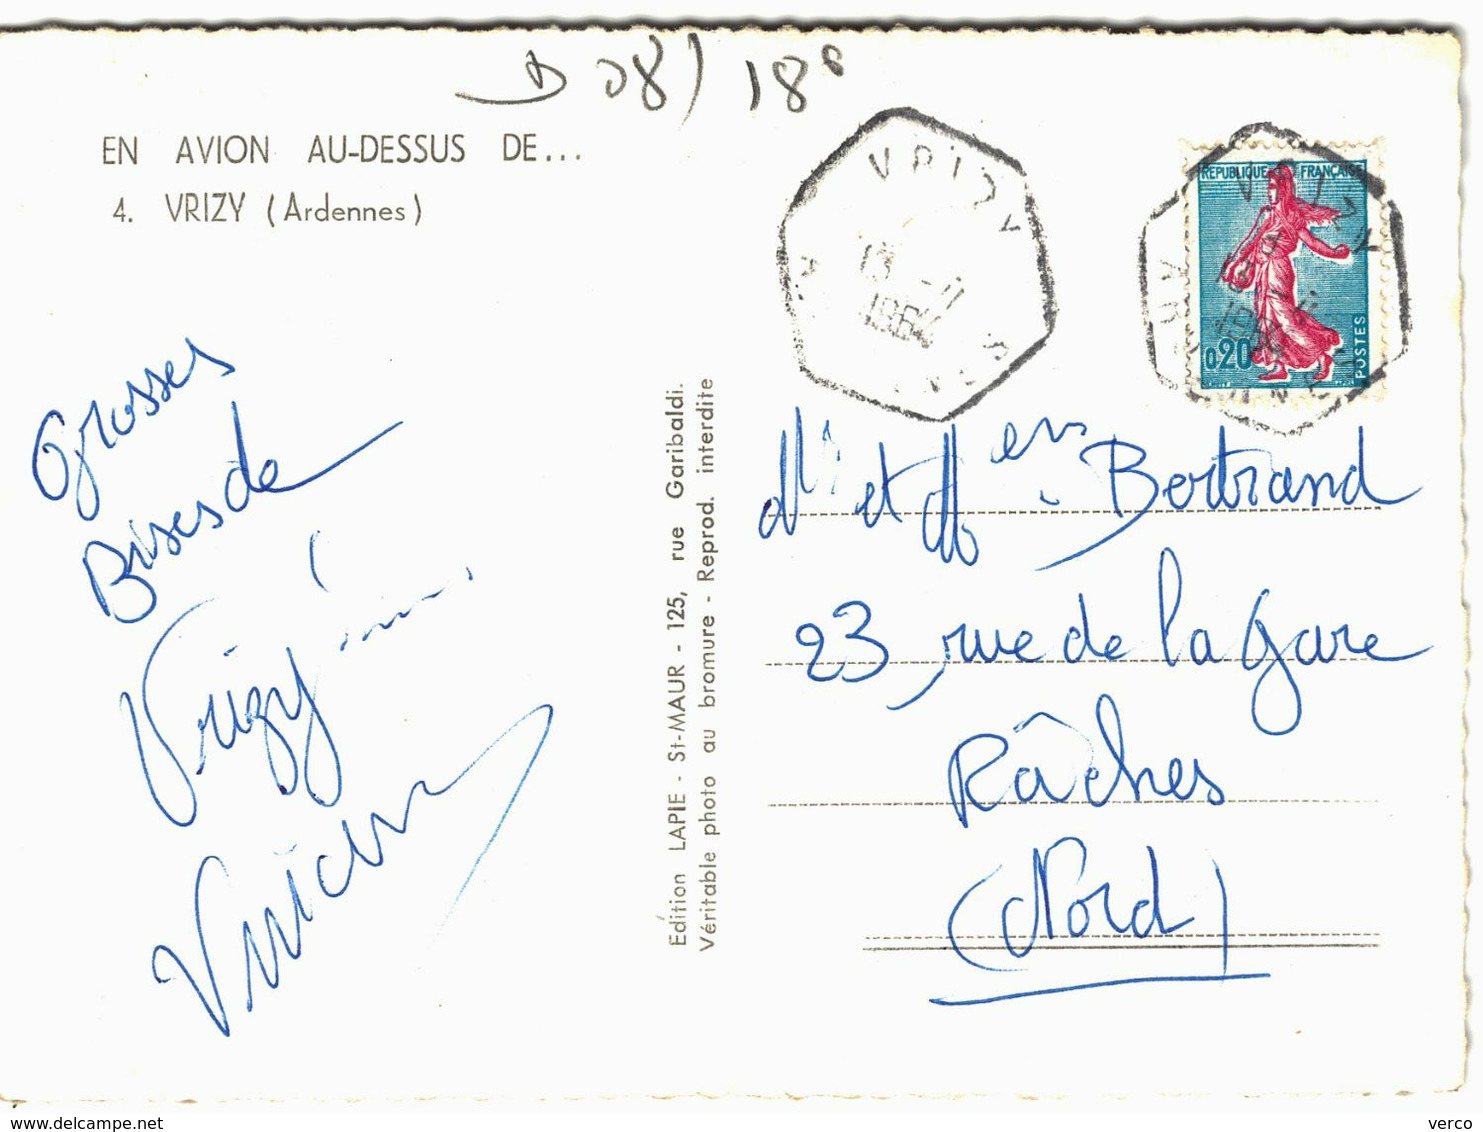 D 08) 18°
EN AVION AU-DESSUS DE...
4. VRIZY (Ardennes)
VRIZY
13 -11
1964
REPUBLIQUE FRANÇAISE
0,20
POSTES
Grosses
Bises de
Vrizy
Edition LAPIE - St-MAUR - 125, rue Garibaldi.
Véritable photo au bromure - Reprod. interdite
Mr et Mme Bertrand
23, rue de la Gare
Râches
(Nord)
www.delcampe.net
verco